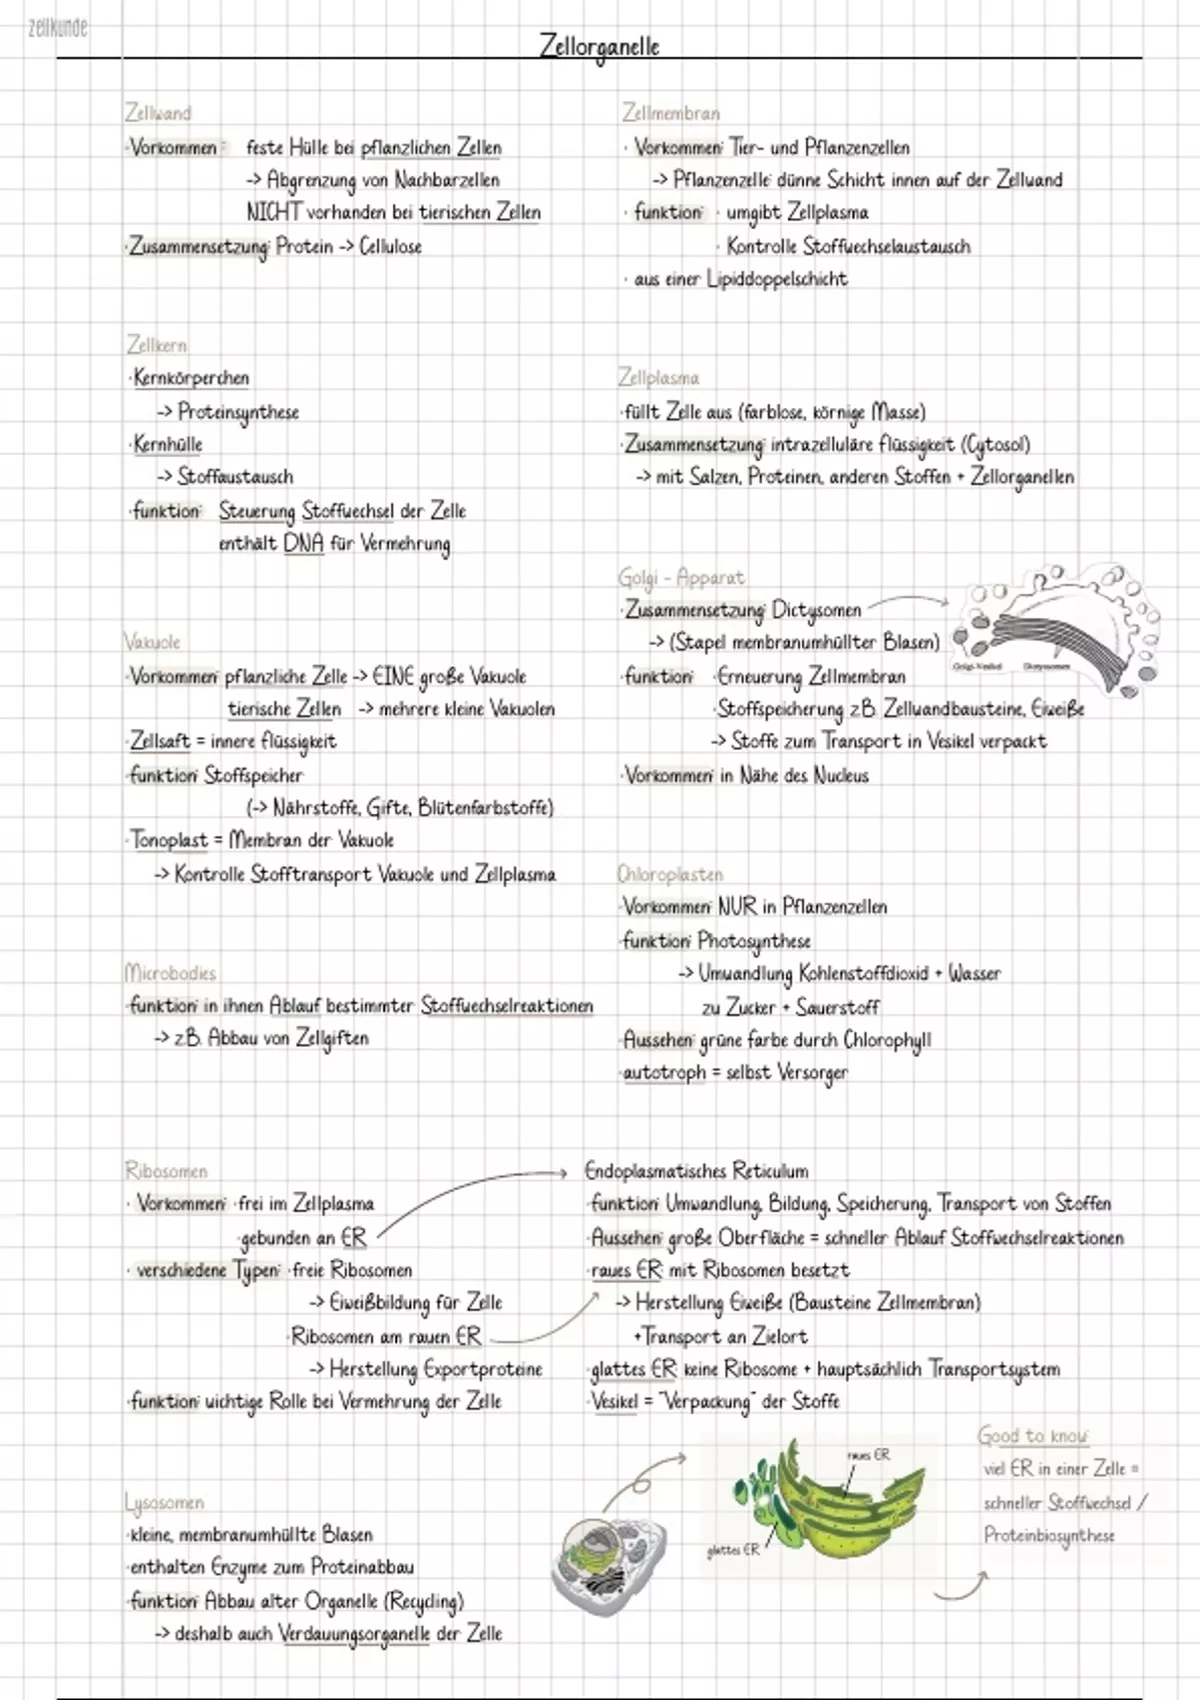 zellkunde
Zellorganelle
Zellwand
·Vorkommen: feste Hülle bei pflanzlichen Zellen
-> Abgrenzung von Nachbarzellen
NICHT vorhanden bei tierischen Zellen
·Zusammensetzung: Protein -> Cellulose
Zellkern
·Kernkörperchen
-> Proteinsynthese
·Kernhülle
-> Stoffaustausch
·funktion: Steuerung Stoffwechsel der Zelle
enthält DNA für Vermehrung
Vakuole
·Vorkommen: pflanzliche Zelle -> EINE große Vakuole
tierische Zellen -> mehrere kleine Vakuolen
·Zellsaft = innere flüssigkeit
·funktion: Stoffspeicher
(-> Nährstoffe, Gifte, Blütenfarbstoffe)
·Tonoplast = Membran der Vakuole
-> Kontrolle Stofftransport Vakuole und Zellplasma
Microbodies
·funktion: in ihnen Ablauf bestimmter Stoffwechselreaktionen
-> z.B. Abbau von Zellgiften
Ribosomen
· Vorkommen: ·frei im Zellplasma
·gebunden an ER
· verschiedene Typen: ·freie Ribosomen
-> Eiweißbildung für Zelle
·Ribosomen am rauen ER
-> Herstellung Exportproteine
·funktion: wichtige Rolle bei Vermehrung der Zelle
Lysosomen
·kleine, membranumhüllte Blasen
·enthalten Enzyme zum Proteinabbau
·funktion: Abbau alter Organelle (Recycling)
-> deshalb auch Verdauungsorganelle der Zelle
Zellmembran
· Vorkommen: Tier- und Pflanzenzellen
-> Pflanzenzelle: dünne Schicht innen auf der Zellwand
· funktion: · umgibt Zellplasma
· Kontrolle Stoffwechselaustausch
· aus einer Lipiddoppelschicht
Zellplasma
·füllt Zelle aus (farblose, körnige Masse)
·Zusammensetzung: intrazelluläre flüssigkeit (Cytosol)
-> mit Salzen, Proteinen, anderen Stoffen + Zellorganellen
Golgi - Apparat
·Zusammensetzung: Dictysomen
-> (Stapel membranumhüllter Blasen)
Golgi-Vesikel Dictyosomen
·funktion: ·Erneuerung Zellmembran
·Stoffspeicherung z.B. Zellwandbausteine, Eiweiße
-> Stoffe zum Transport in Vesikel verpackt
·Vorkommen: in Nähe des Nucleus
Chloroplasten
·Vorkommen: NUR in Pflanzenzellen
·funktion: Photosynthese
-> Umwandlung Kohlenstoffdioxid + Wasser
zu Zucker + Sauerstoff
·Aussehen: grüne farbe durch Chlorophyll
·autotroph = selbst Versorger
Endoplasmatisches Reticulum
·funktion: Umwandlung, Bildung, Speicherung, Transport von Stoffen
·Aussehen: große Oberfläche = schneller Ablauf Stoffwechselreaktionen
·raues ER: mit Ribosomen besetzt
-> Herstellung Eiweiße (Bausteine Zellmembran)
+Transport an Zielort
·glattes ER: keine Ribosome + hauptsächlich Transportsystem
·Vesikel = "Verpackung" der Stoffe
raues ER
glattes ER
Good to know:
viel ER in einer Zelle =
schneller Stoffwechsel /
Proteinbiosynthese